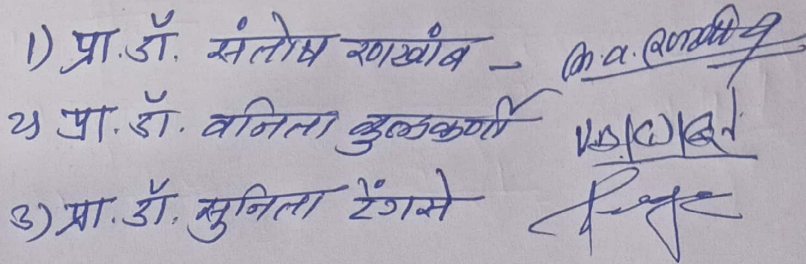 १) प्रा. डॉ. संतोष रणखांब -
२) प्रा. डॉ. वनिता कुलकर्णी
३) प्रा. डॉ. सुनिता टेंगसे